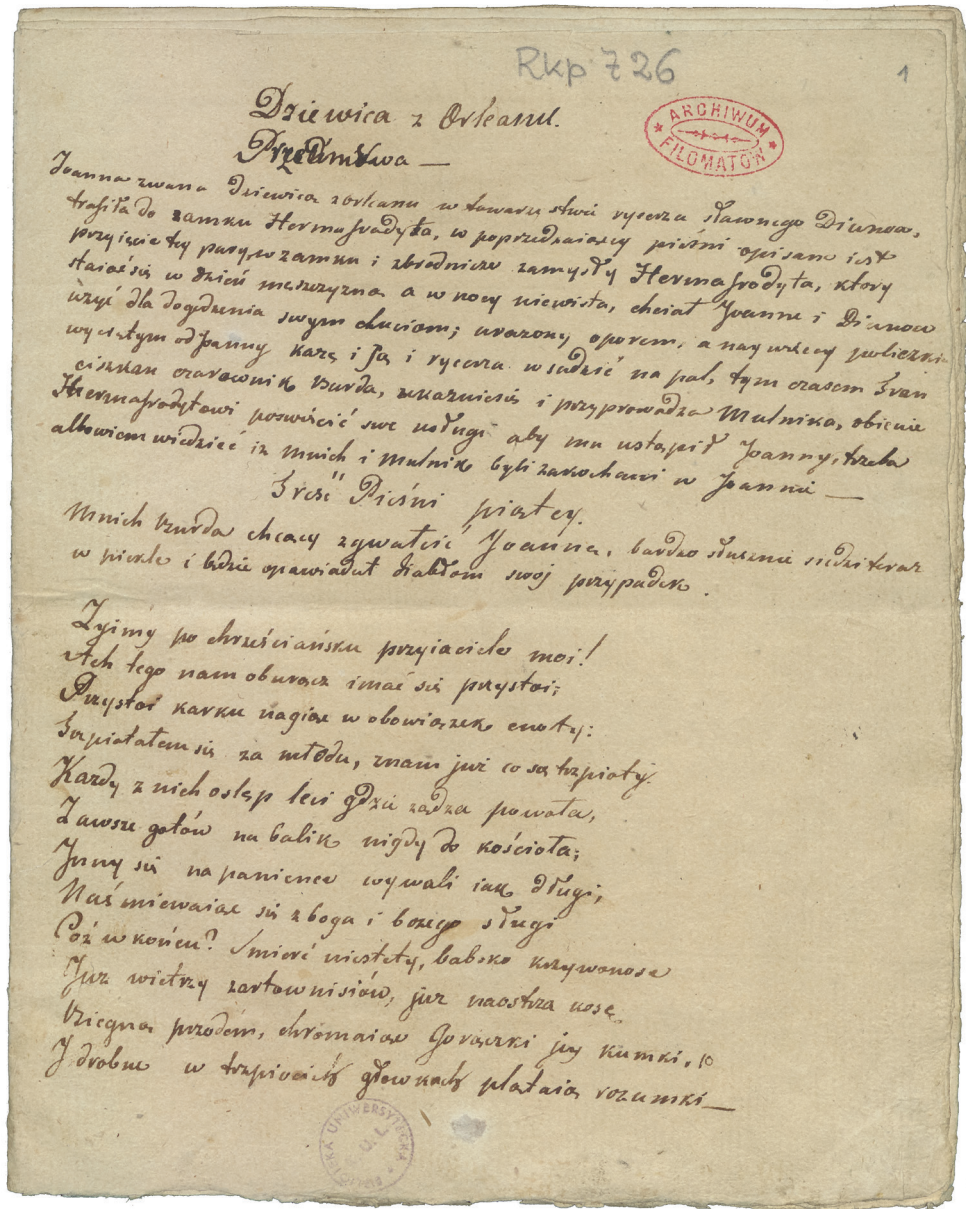 Rkp 726
1
ARCHIWUM FILOMATÓW
Dziewica z Orleanu.
Przedmowa —
Joanna zwana Dziewica z Orleanu w towarzystwie rycerza sławnego Diunoa,
trafiła do zamku Hermafrodyta, w poprzedzaiącey pieśni opisane iest
przyięcie tey pary w zamku i zbrodnicze zamysły Hermafrodyta, ktory
staiąc się w dzień meszczyzną a w nocy niewiasta, chciał Joanne i Diunoa
użyć dla dogodzenia swym chuciom; urażony oporem, a naywięcey policzkiem
wyciętym od Joanny każe i Ją i rycerza wsadzić na pal, tym czasem Fran
ciszkan czarownik Burda, zkaznicsię i przyprowadza Mulnika, obiecuie
Hermafrodytowi poswięcić swe usługi aby mu ustąpił Joanny, trzeba
albowiem wiedzieć iz mnich i mulnik byli zakochani w Joannie —
Treść Pieśni piątey.
Mnich Burda chcący zgwałcić Joannę, bardzo słusznie siedzi teraz
w piekle i będzie opowiadał diabłom swój przypadek.
Żyimy po chrześciańsku przyiaciele moi!
Ach tego nam oburącz imać się przystoi;
Przystoi karku nagiąć w obowiązek cnoty:
Trzpiotałem się za młodu, znam już co są trzpioty.
Kazdy z nich oslep leci gdzie żądza powoła,
Zawsze gotów na balik nigdy do kościoła;
Inny się na panience wywali iak długi,
Naśmiewaiąc się z boga i bożego sługi
Cóż w końcu? Śmierć niestety, babsko krzywonose
Juz wietrzy zartownisiów, już naostrza kosę
Biegną przodem, chromaiąc Gorączki jey kumki, 10
I drobne w trzpiocich głowkach plątaią rozumki —
UNIWERSYTECKA